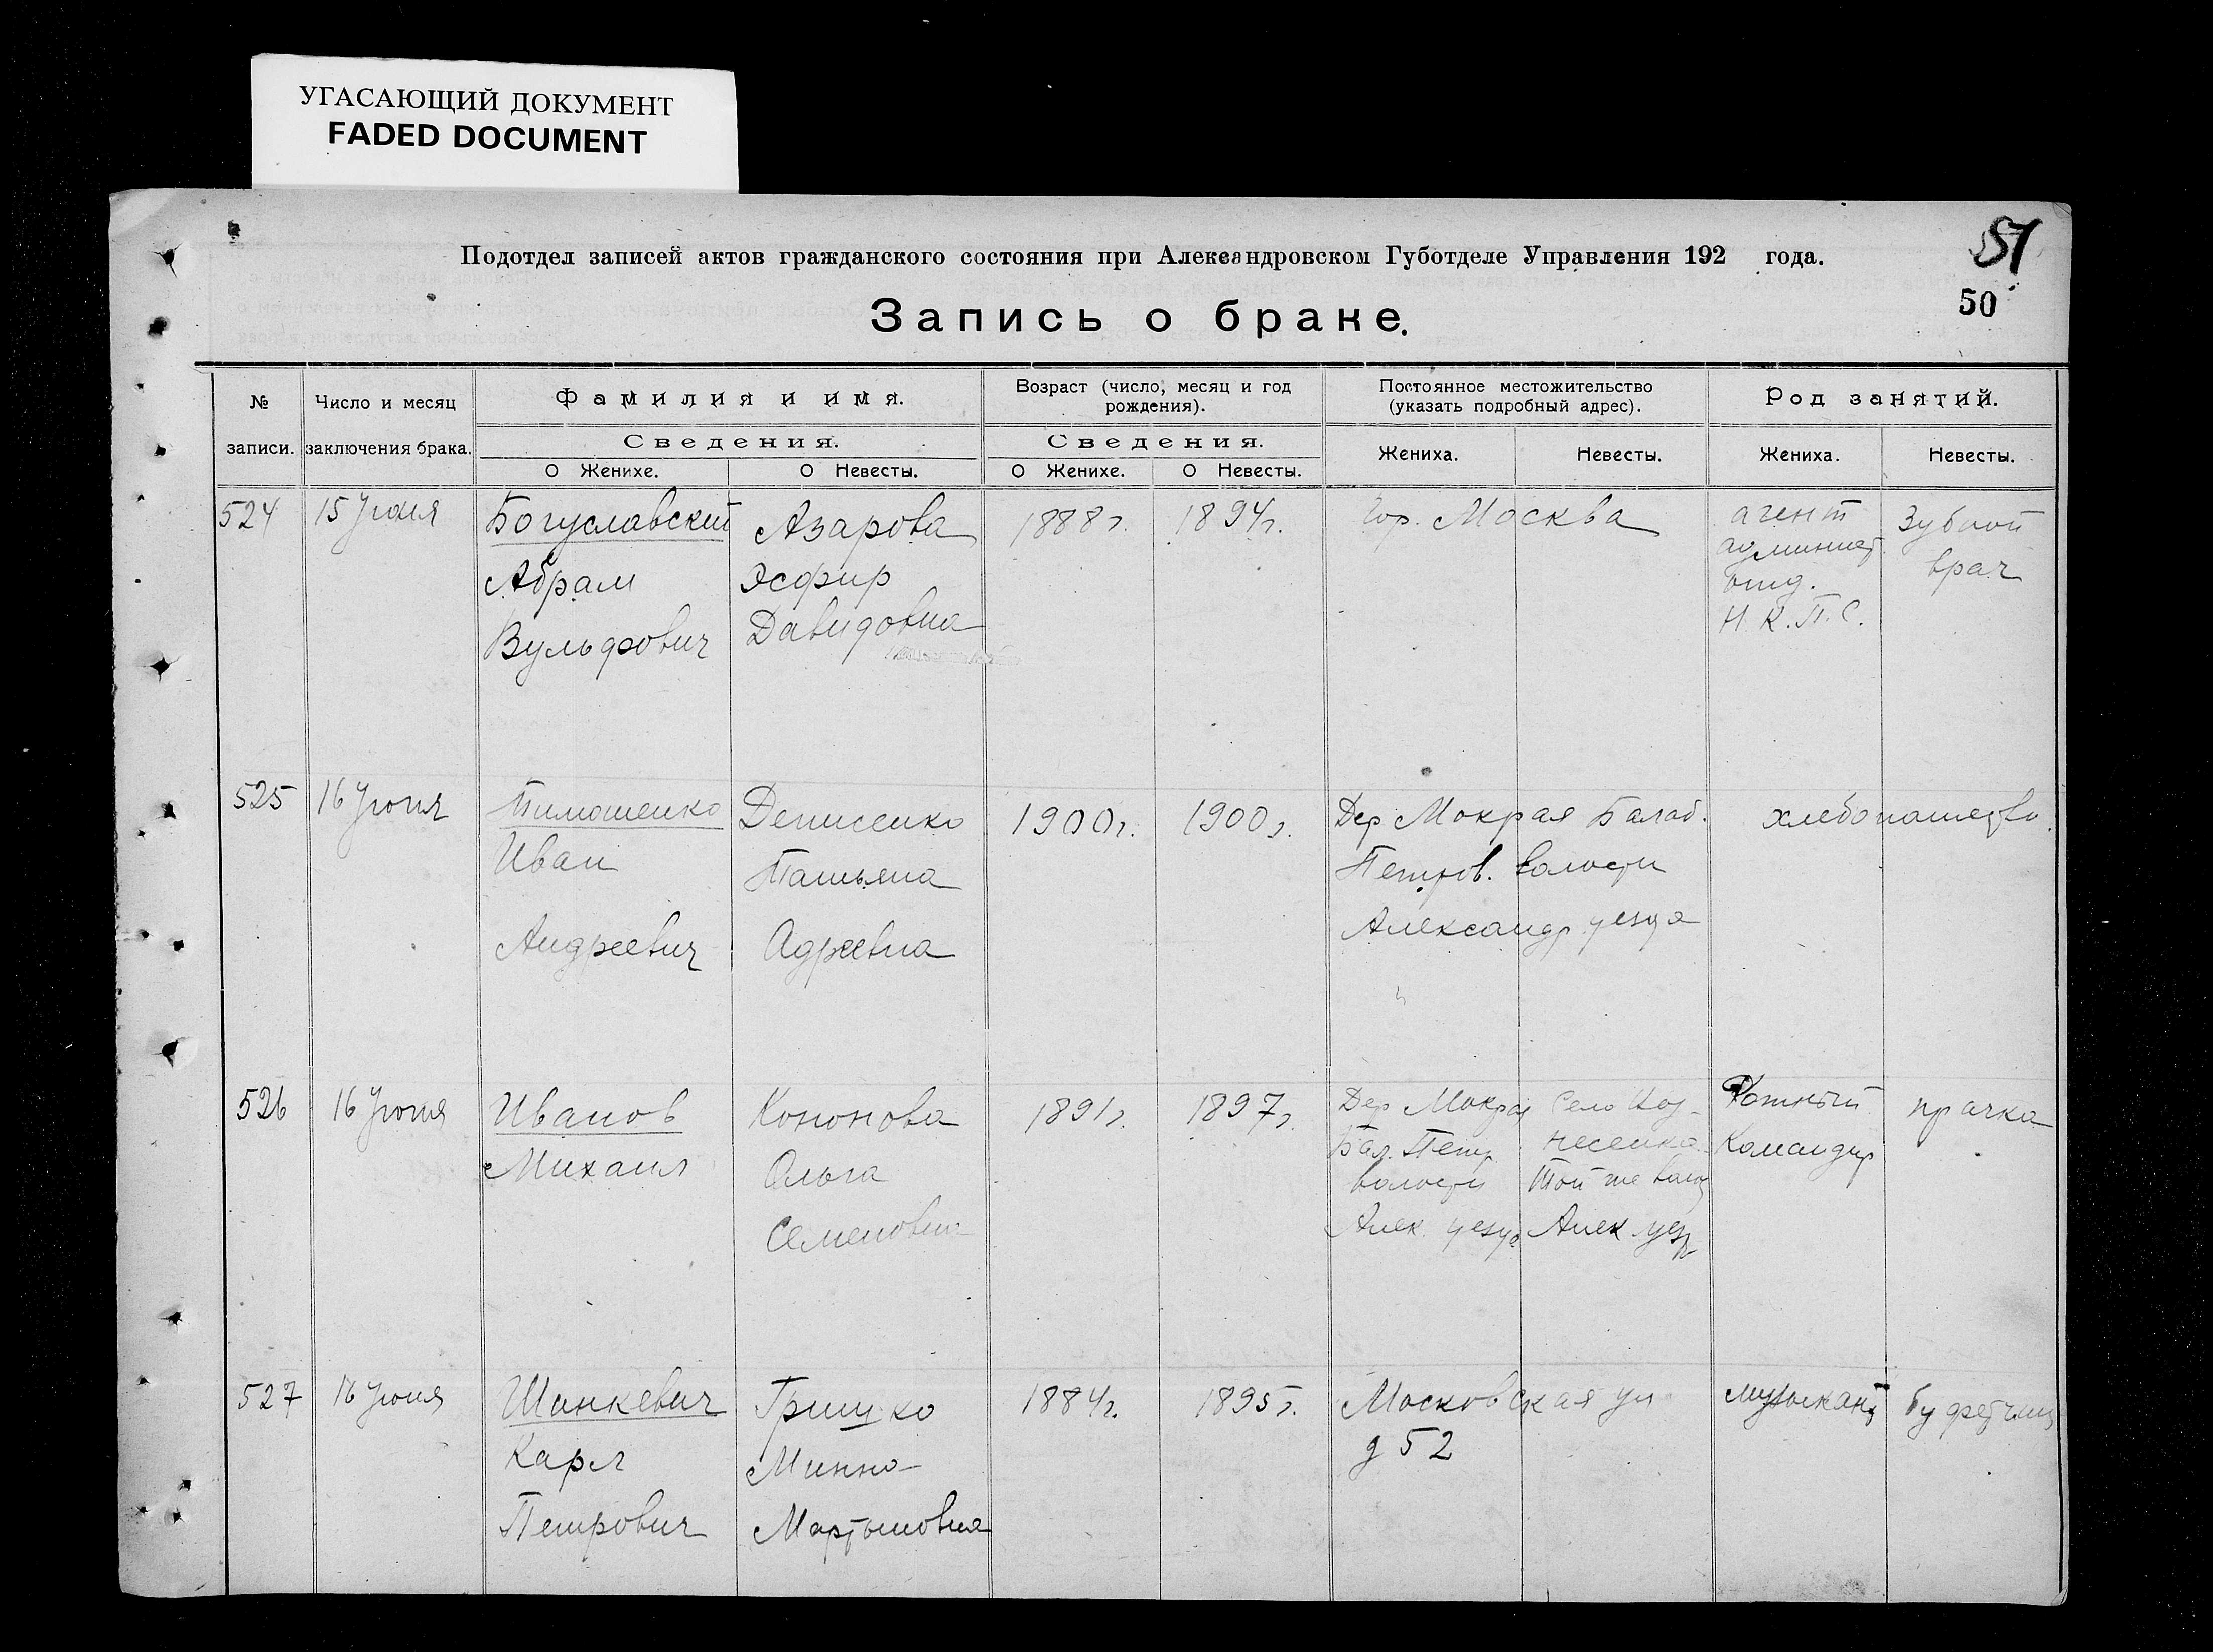 УГАСАЮЩИЙ ДОКУМЕНТ
FADED DOCUMENT
51
Подотдел записей актов гражданского состояния при Александровском Губотделе Управления 192 года.
50
Запись о браке.
№ записи.
Число и месяц заключения брака.
Фамилия и имя.
Сведения.
О Женихе.
О Невесты.
Возраст (число, месяц и год рождения).
Сведения.
О Женихе.
О Невесты.
Постоянное местожительство (указать подробный адрес).
Жениха.
Невесты.
Род занятий.
Жениха.
Невесты.
524
15 Июня
Богуславский
Абрам
Вульфович
Азарова
Эсфир
Давидовна
1888 г.
1894 г.
Гор. Москва
агент
админист
отд.
Н.К.П.С.
Зубной
врач
525
16 Июня
Тимошенко
Иван
Андреевич
Денисенко
Татьяна
Адреевна
1900 г.
1900 г.
Дер Мокрая Балаб.
Петров. волости
Александр уезда
хлебопашество
526
16 Июня
Иванов
Михаил
Кононова
Ольга
Семеновна
1891 г.
1897 г.
Дер Мокрая
Бал. Петр
волости
Алек. уезда
Село
несенка
Той же вол
Алек. уезд
Ротный
Командир
прачка
527
16 Июня
Шинкевич
Карл
Петрович
Гришко
Минна
Мартыновна
1884 г.
1895 г.
Московская ул
д 52
музыкант
буфетчиц